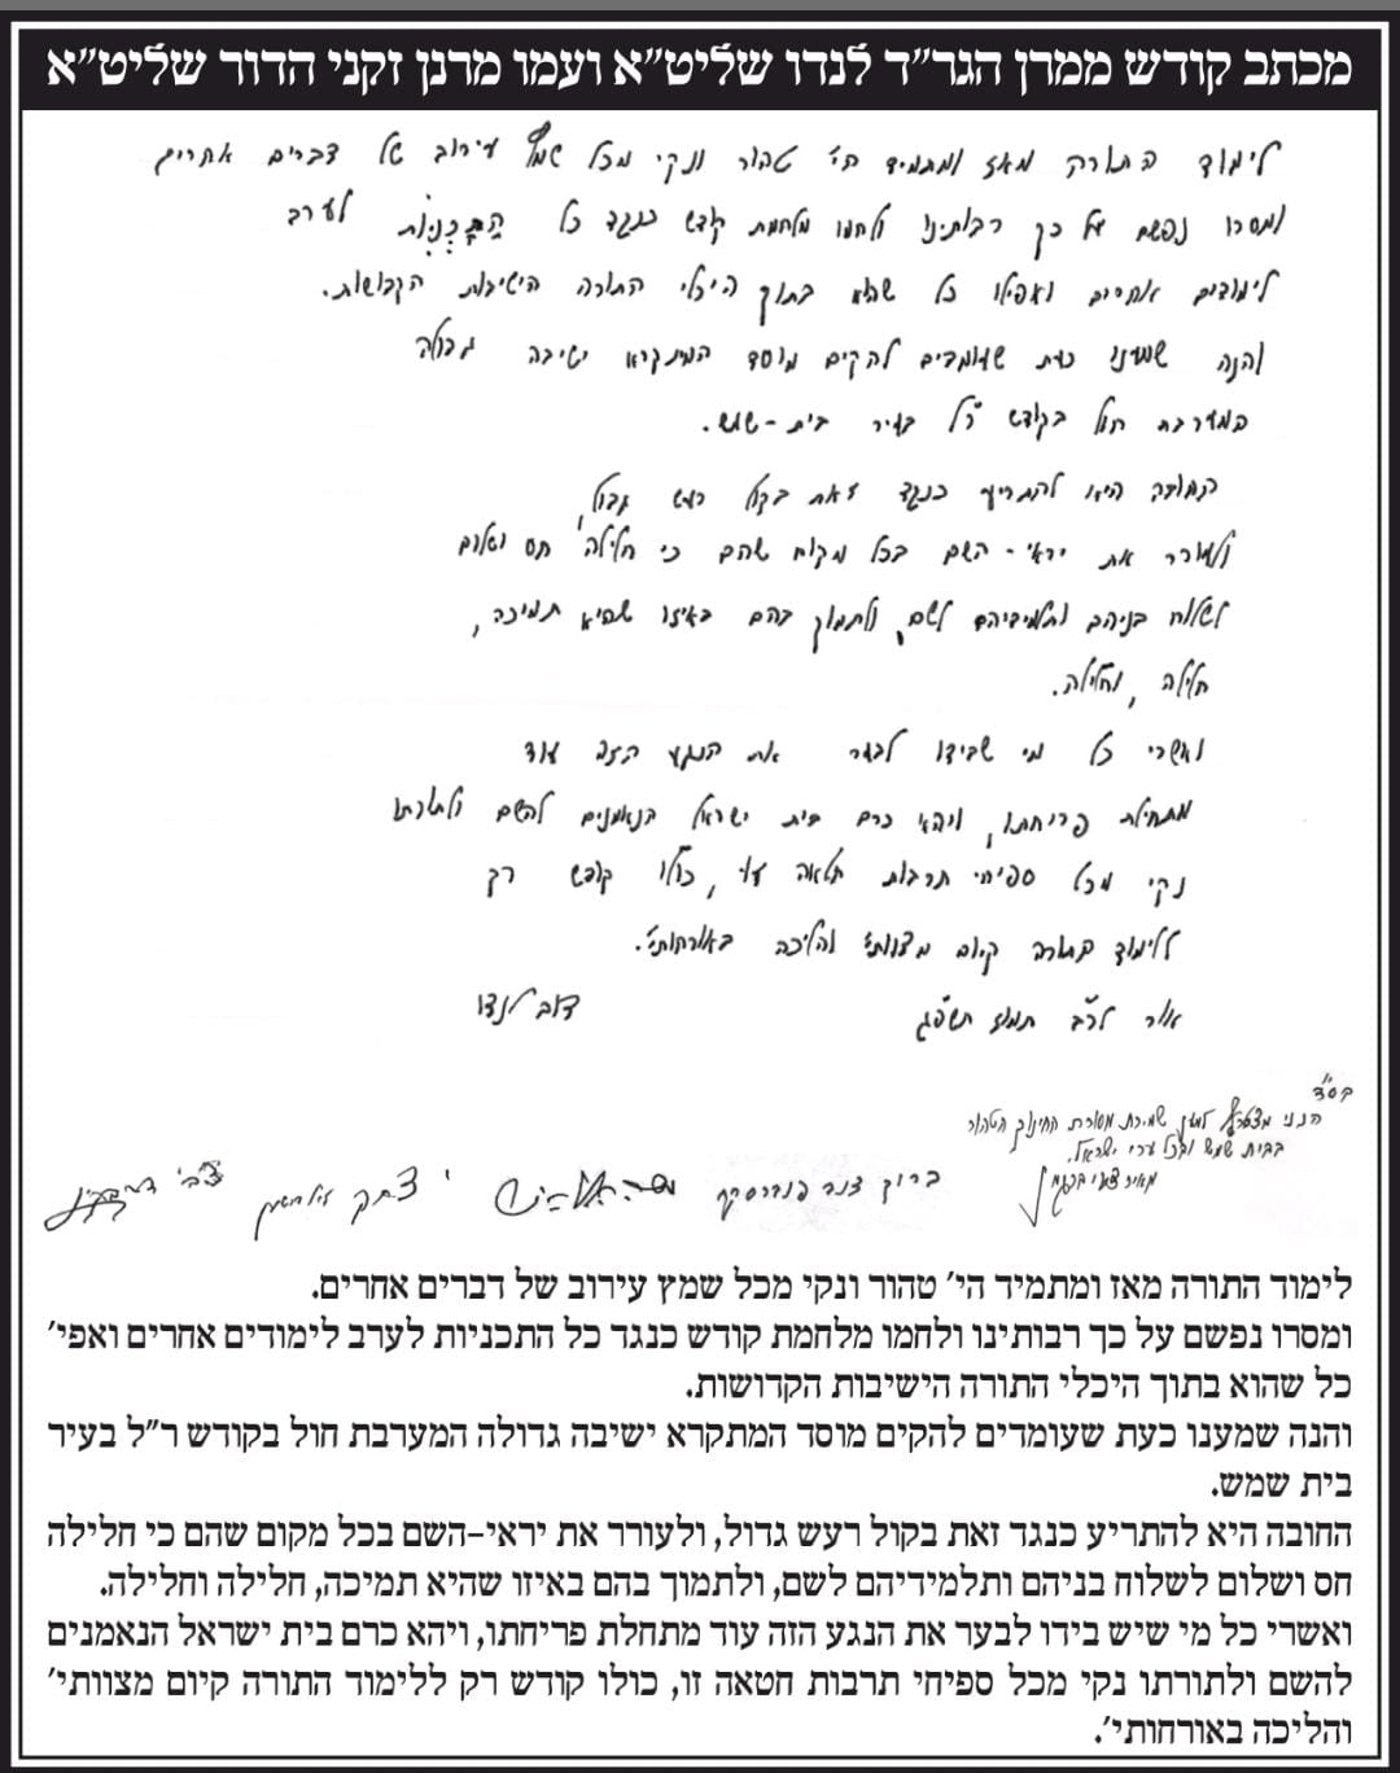 מכתב קודש ממרן הגר״ד לנדו שליט״א ועמו מרנן זקני הדור שליט״א
לימוד התורה מאז ומתמיד הי׳ טהור ונקי מכל שמץ עירוב של דברים אחרים
ומסרו נפשם על כך רבותינו ולחמו מלחמת קודש כנגד כל התכניות לערב
לימודים אחרים ואפילו כל שהוא בתוך היכלי התורה הישיבות הקדושות.
והנה שמענו כעת שעומדים להקים מוסד המתקרא ישיבה גדולה
המערבת חול בקודש ר״ל בעיר בית-שמש.
החובה היא להתריע כנגד זאת בקול רעש גדול,
ולעורר את יראי-השם בכל מקום שהם כי חלילה חס ושלום
לשלוח בניהם ותלמידיהם לשם, ולתמוך בהם באיזו שהיא תמיכה,
חלילה, וחלילה.
ואשרי כל מי שבידו לבער את הנגע הזה עוד
מתחילת פריחתו, ויהא כרם בית ישראל הנאמנים להשם ולתורתו
נקי מכל ספיחי תרבות חטאה זו, כולו קודש רק
ללימוד התורה קיום מצוותי׳ והליכה באורחותי׳.
אור לר״ב תמוז תשפ״ג
דוב לנדו
בס״ד
הנני מצטרף למען שמירת מסורת החינוך הטהור
בבית שמש ובכל ערי ישראל.
מאיר צבי ברגמן
ברוך דב פוברסקי
לימוד התורה מאז ומתמיד הי׳ טהור ונקי מכל שמץ עירוב של דברים אחרים.
ומסרו נפשם על כך רבותינו ולחמו מלחמת קודש כנגד כל התכניות לערב לימודים אחרים ואפי׳
כל שהוא בתוך היכלי התורה הישיבות הקדושות.
והנה שמענו כעת שעומדים להקים מוסד המתקרא ישיבה גדולה המערבת חול בקודש ר״ל בעיר
בית שמש.
החובה היא להתריע כנגד זאת בקול רעש גדול, ולעורר את יראי-השם בכל מקום שהם כי חלילה
חס ושלום לשלוח בניהם ותלמידיהם לשם, ולתמוך בהם באיזו שהיא תמיכה, חלילה וחלילה.
ואשרי כל מי שיש בידו לבער את הנגע הזה עוד מתחלת פריחתו, ויהא כרם בית ישראל הנאמנים
להשם ולתורתו נקי מכל ספיחי תרבות חטאה זו, כולו קודש רק ללימוד התורה קיום מצוותי׳
והליכה באורחותי׳.